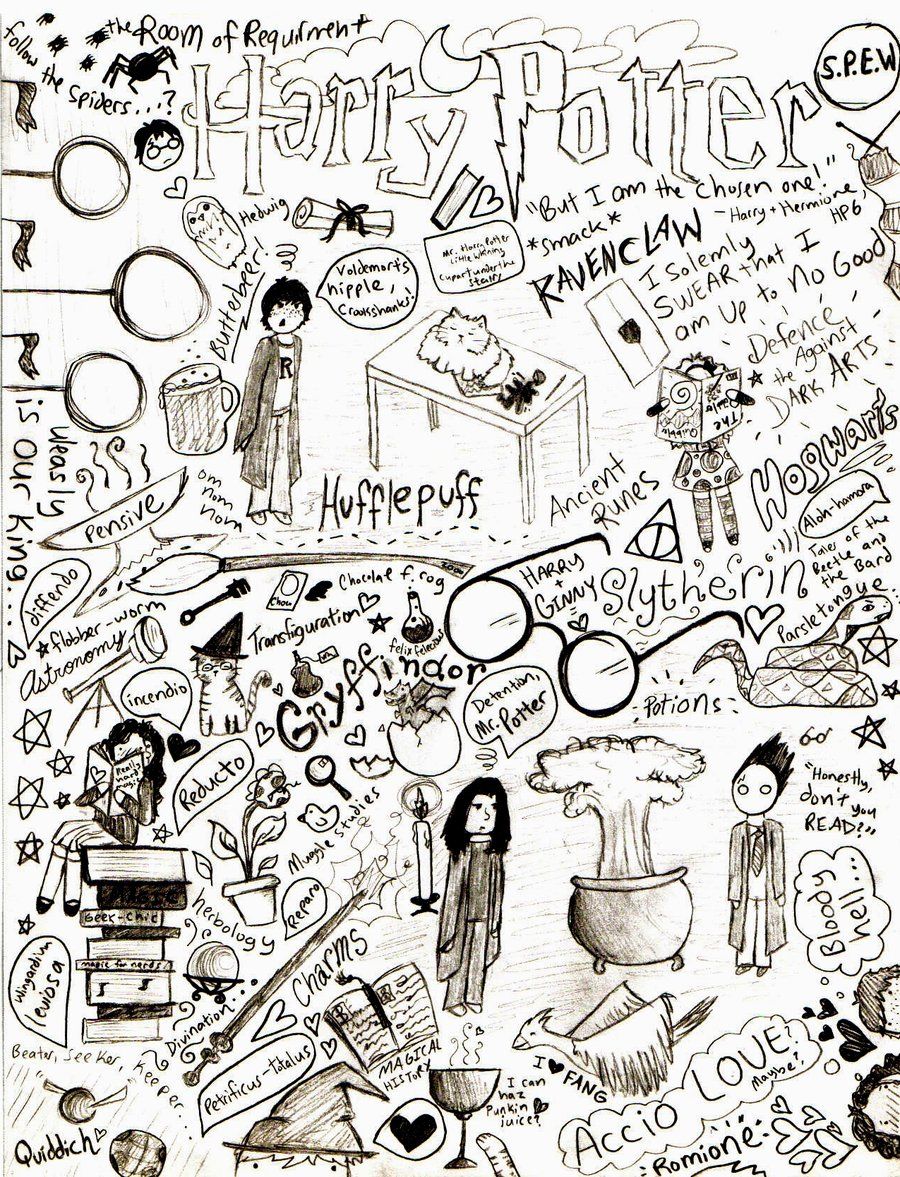 the Room of Requirment
follow the spiders...?
Harry Potter
S.P.E.W
"But I am the chosen one!"
*smack*
- Harry + Hermione,
HP6
Hedwig
Mr. Harry Potter
Little Whining
Cupart under the
stairs
RAVENCLAW
I Solemly
SWEAR that I
am Up to No Good
Butterbeer!
Voldemorts
nipple,
Crookshanks.
R
Defence
Against
the
DARK ARTS
The
Quibbler
Hogwarts
Weasly
is our King...
Pensive
om
nom
nom
Hufflepuff
Ancient
Runes
Aloh-hamora
Tales of the
Beetle and
the Bard
diffendo
2001
HARRY
+
GINNY
Slytherin
Parsletongue
Choco
Chocolat f.rog
flobber-worm
Astronomy
Transfiguration
felix felecious
Gryffindor
incendio
Detention,
Mr. Potter
Potions
Really
hard
magic
Reducto
"Honestly,
don't you
READ?"
Muggle studies
Geek-chic
magic for nerds
herbology
Reparo
Bloody
hell...
Wingardium
leviosa
Charms
Divination
Beater, Seeker,
Keeper...
Petrificus-Totalus
MAGICAL
HISTORY
I ♥ FANG
I can
haz
Punkin
juice?
Accio LOVE?
Maybe?
Romione
Quiddich